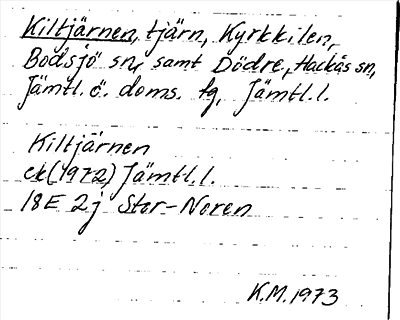 Kiltjärnen, tjärn, Kyrkkilen,
Bodsjö sn, samt Dödre, Hackås sn,
Jämtl. ö. doms. tg, Jämtl. l.
Kiltjärnen
ek (1972) Jämtl. l.
18E 2j Stor-Noren
K.M. 1973